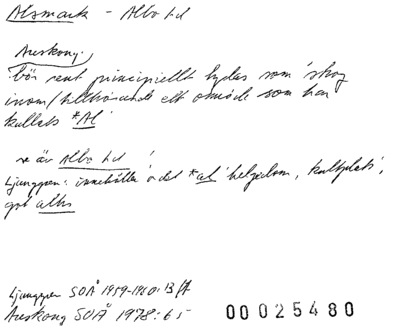 Alsmark - Albo hd
Auskong.
bör rent principiellt tydas som 'skog
inom/tillhörande ett område som har
kallats *Al'
se äv Albo hd !
Ljunggren: innehålla ordet *al 'helgedom, kultplats',
got alhs
Ljunggren SOÅ 1959-1960:13 ff
Auskong SOÅ 1978:65
00025480